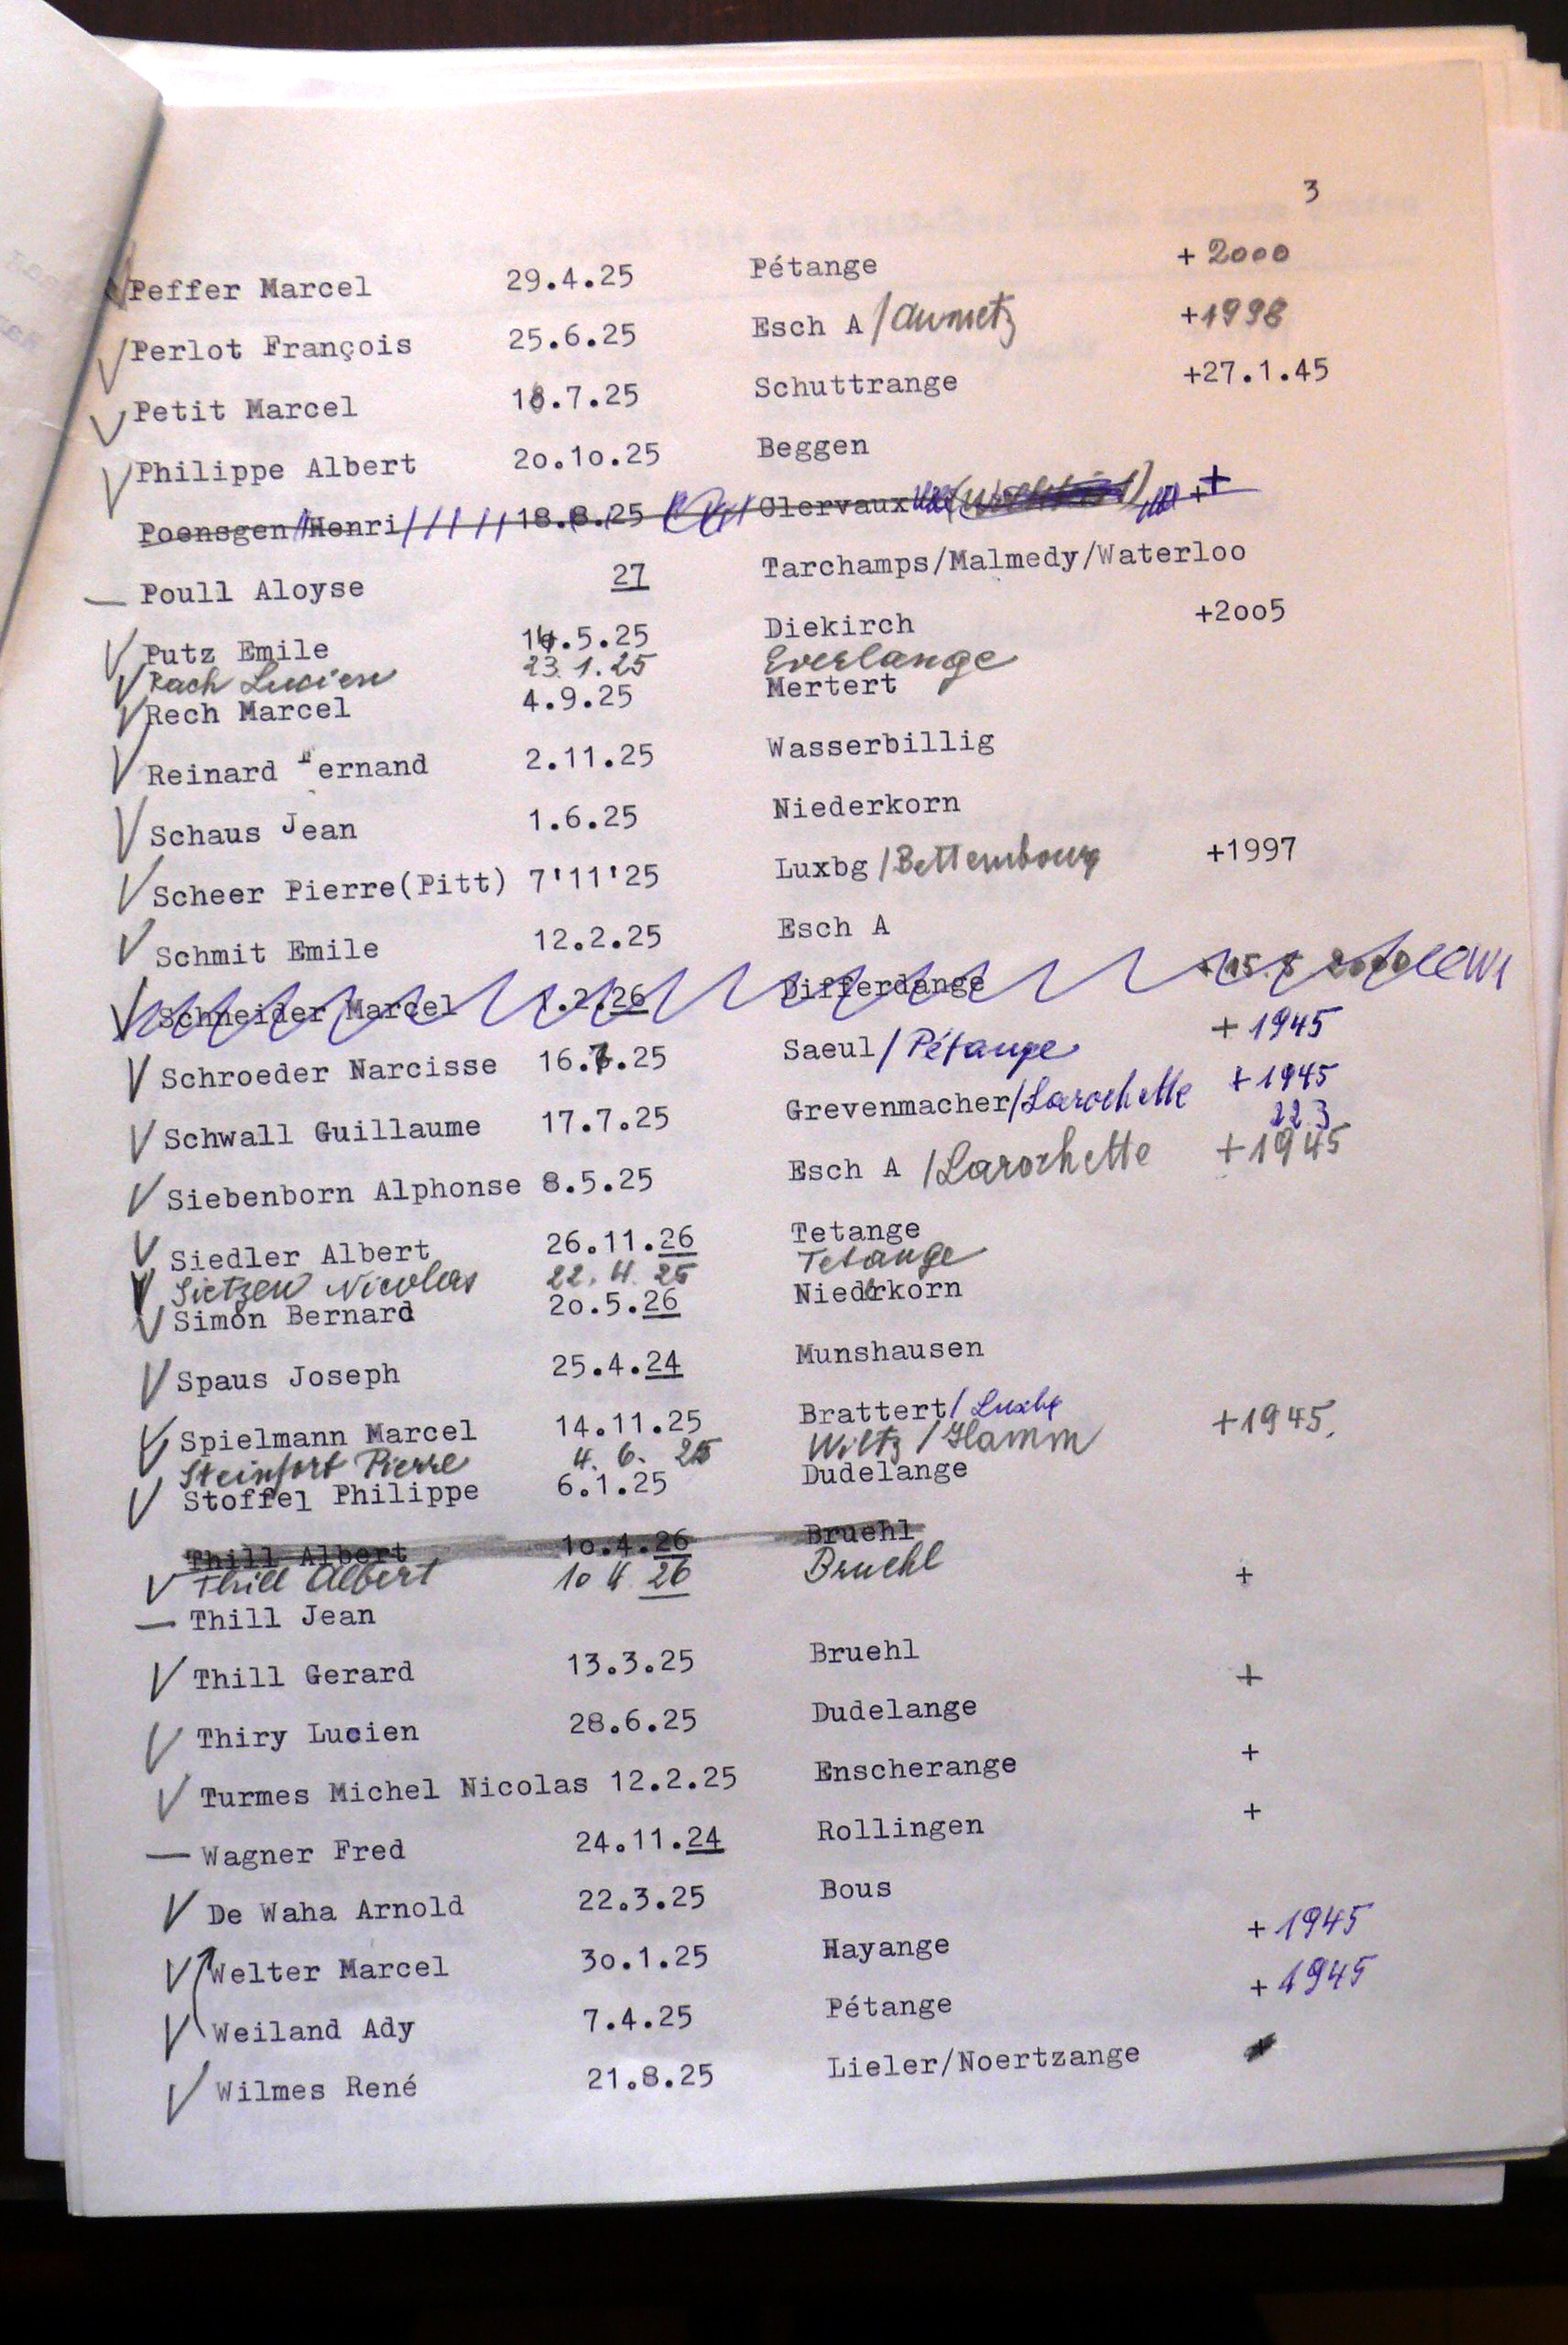 3
Peffer Marcel 29.4.25 Pétange + 2000
Perlot François 25.6.25 Esch A /Aumetz +1998
Petit Marcel 18.7.25 Schuttrange +27.1.45
Philippe Albert 20.10.25 Beggen
Poensgen Henri 18.8.25 Clervaux ++
— Poull Aloyse 27 Tarchamps/Malmedy/Waterloo
Putz Emile 14.5.25 Diekirch +2005
Rach Lucien 23.1.25 Everlange
Rech Marcel 4.9.25 Mertert
Reinard Fernand 2.11.25 Wasserbillig
Schaus Jean 1.6.25 Niederkorn
Scheer Pierre(Pitt) 7'11'25 Luxbg /Bettembourg +1997
Schmit Emile 12.2.25 Esch A
Schneider Marcel .2.26 Differdange
Schroeder Narcisse 16.7.25 Saeul/Pétange + 1945
Schwall Guillaume 17.7.25 Grevenmacher/Larochette + 1945
22 3
Siebenborn Alphonse 8.5.25 Esch A /Larochette +1945
Siedler Albert 26.11.26 Tetange
Sietzen Nicolas 22. 4. 25 Tetange
Simon Bernard 20.5.26 Niederkorn
Spaus Joseph 25.4.24 Munshausen
Spielmann Marcel 14.11.25 Brattert/ Luxbg +1945.
Steinfort Pierre 4. 6. 25 Wiltz /Hamm
Stoffel Philippe 6.1.25 Dudelange
Thill Albert 10.4.26 Bruehl
Thill Albert 10 4 26 Bruehl +
— Thill Jean
Thill Gerard 13.3.25 Bruehl +
Thiry Lucien 28.6.25 Dudelange
Turmes Michel Nicolas 12.2.25 Enscherange +
— Wagner Fred 24.11.24 Rollingen +
De Waha Arnold 22.3.25 Bous
Welter Marcel 30.1.25 Hayange + 1945
Weiland Ady 7.4.25 Pétange + 1945
Wilmes René 21.8.25 Lieler/Noertzange